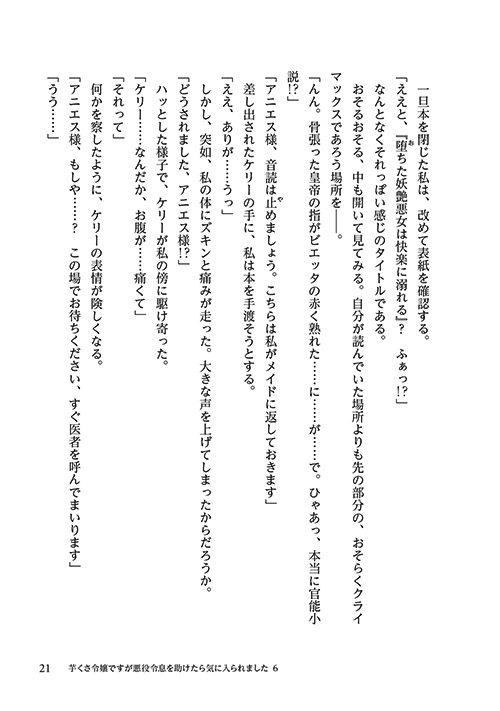 一旦本を閉じた私は、改めて表紙を確認する。
「ええと、『堕ちた妖艶悪女は快楽に溺れる』？　ふぁっ!?」
　なんとなくそれっぽい感じのタイトルである。
　おそるおそる、中も開いて見てみる。自分が読んでいた場所よりも先の部分の、おそらくクライ
マックスであろう場所を――。
「んん。骨張った皇帝の指がビエッタの赤く熟れた……に……が……で。ひゃあっ、本当に官能小
説!?」
「アニエス様、音読は止めましょう。こちらは私がメイドに返しておきます」
　差し出されたケリーの手に、私は本を手渡そうとする。
「ええ、ありが……うっ」
　しかし、突如、私の体にズキンと痛みが走った。大きな声を上げてしまったからだろうか。
「どうされました、アニエス様!?」
　ハッとした様子で、ケリーが私の傍に駆け寄った。
「ケリー……なんだか、お腹が……痛くて」
「それって」
　何かを察したように、ケリーの表情が険しくなる。
「アニエス様、もしや……？　この場でお待ちください、すぐ医者を呼んでまいります」
「うう……」
21　芋くさ令嬢ですが悪役令息を助けたら気に入られました 6